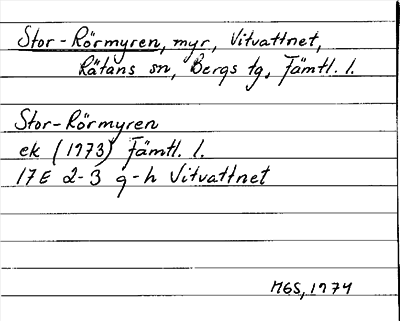 Stor-Rörmyren, myr, Vitvattnet,
Rätans sn, Bergs tg, Jämtl. l.
Stor-Rörmyren
ek (1973) Jämtl. l.
17E 2-3 g-h Vitvattnet
MGS, 1974